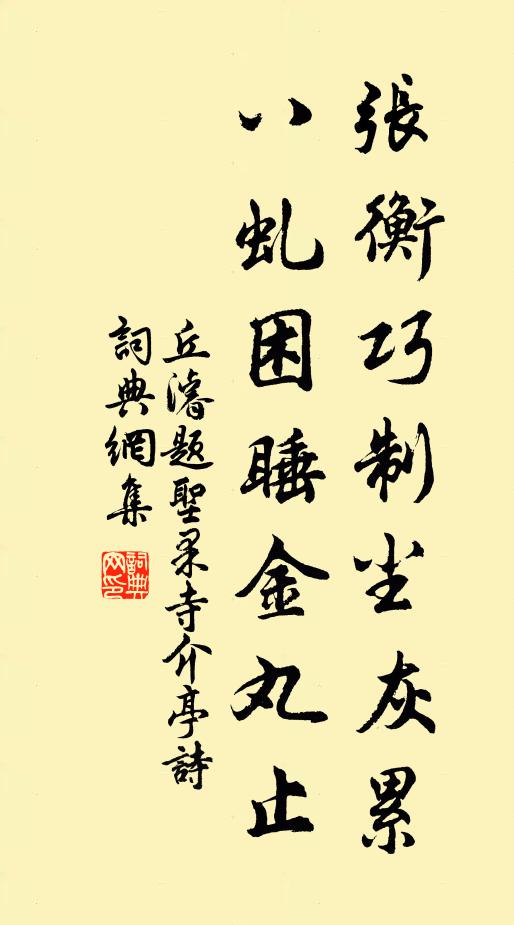 張衡巧制尘灰累
八虬困睡金丸止
丘濬題聖果寺介亭詩
詞典網集
詞典网印